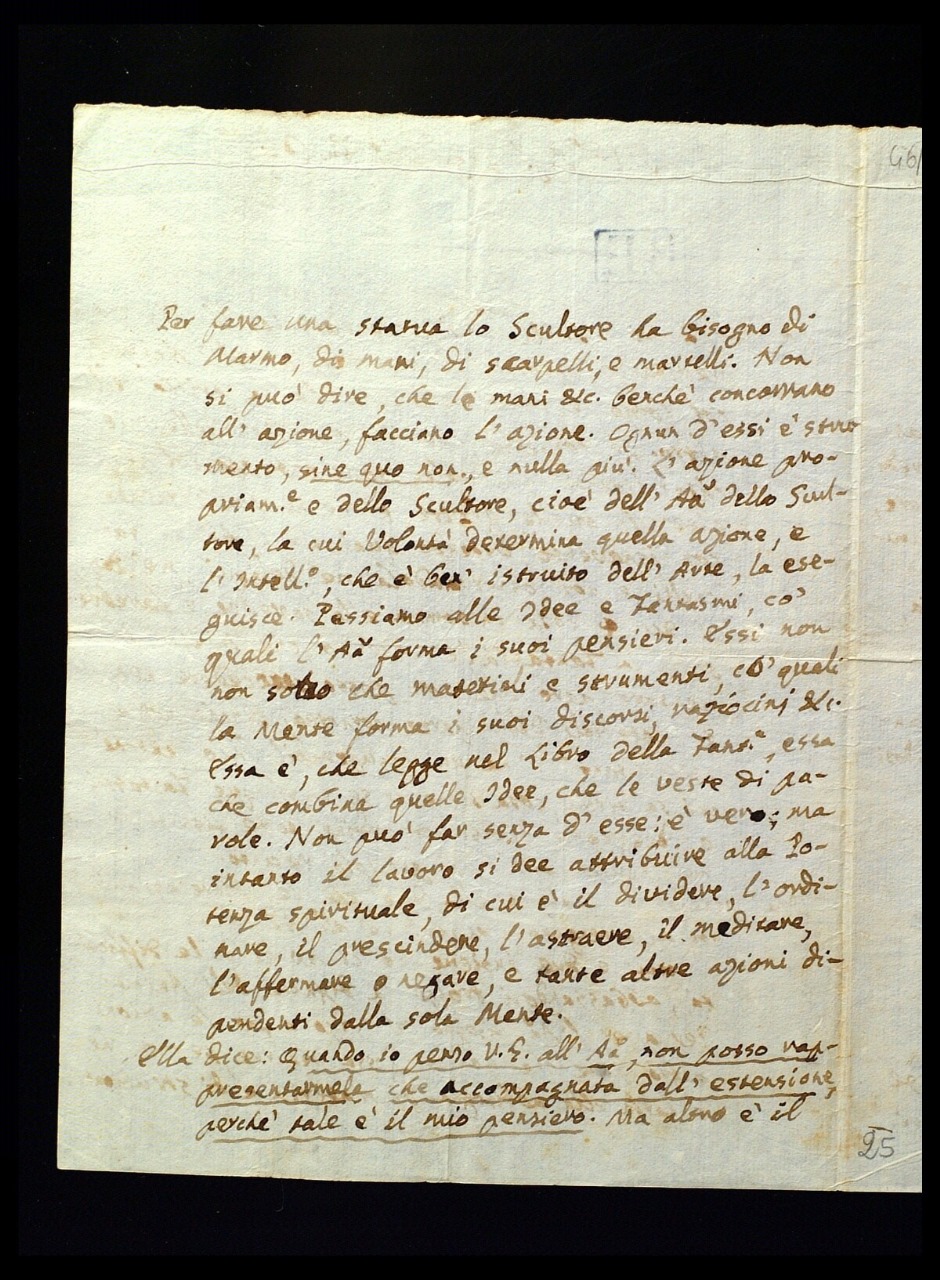 46
Per fare una statua lo Scultore ha bisogno di
Marmo, di mani, di scarpelli, e martelli. Non
si può dire, che le mani &c. benchè concorrano
all' azione, facciano l' azione. Ognun d'essi è stru
mento, sine quo non, e nulla più. L' azione pro-
priam.e e dello Scultore, cioè dell' Aã dello Scul-
tore, la cui Volontà determina quella azione, e
l' Intell.o, che è ben' istruito dell' Arte, la ese-
guisce. Passiamo alle Idee e Fantasmi, co'
quali l' Aã forma i suoi pensieri. Essi non
non sono che materiali e strumenti, co' quali
la Mente forma i suoi discorsi, raziocinj &c.
Essa è, che legge nel Libro della Fant.a, essa
che combina quelle Idee, che le veste di pa-
role. Non può far senza d' esse: è vero; ma
intanto il lavoro si dee attribuire alla Po-
tenza spirituale, di cui è il dividere, l' ordi-
nare, il prescindere, l' astraere, il meditare,
l' affermare o negare, e tante altre azioni di-
pendenti dalla sola Mente.
Ella dice: Quando io penso V. E. all' Aã, non posso rap-
presentarmela che accompagnata dall' estensione,
perchè tale è il mio pensiero. Ma altro è il
25